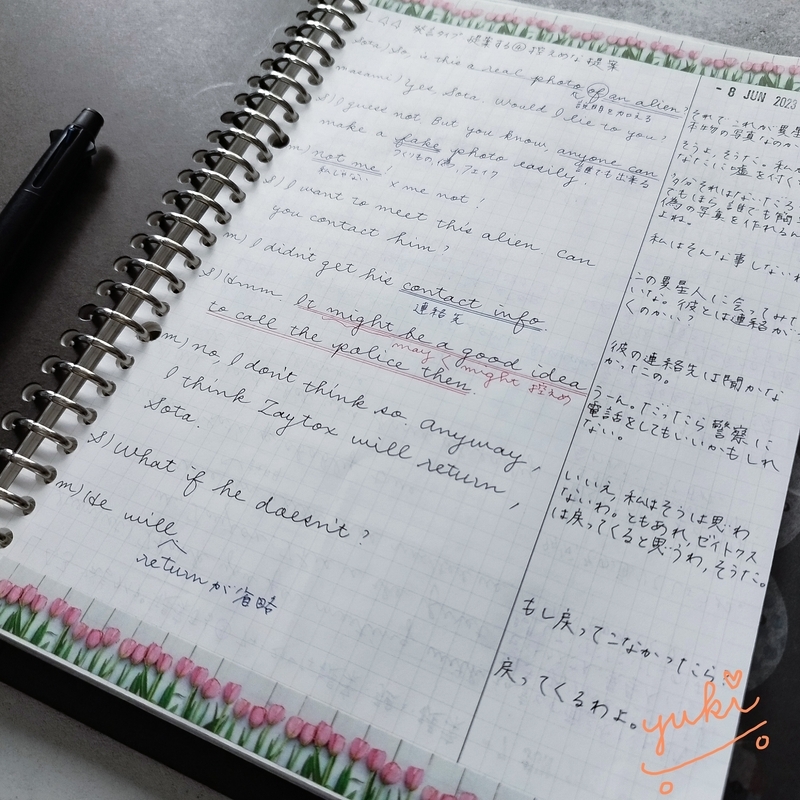 L44
提案する④控えめな提案
- 8 JUN 2023
Sota) So, is this a real photo of an alien?
説明を加える
masami) Yes, Sota. Would I lie to you?
S) I guess not. But you know, anyone can
誰でも出来る
make a fake photo easily.
つくりもの, 偽, フェイク
m) not me!
私じゃない
× me not!
S) I want to meet this alien. Can
you contact him?
m) I didn't get his contact info.
連絡先
S) Hmm. It might be a good idea
may < might 控えめ
to call the police then.
m) no, I don't think so. anyway,
I think Zaytox will return,
Sota.
S) What if he doesn't?
m) He will
return が省略
それでこれが異星
本物の写真なのか
そうよ、そうた。私が
なたに嘘を付く
でもほら、誰でも簡
偽の写真を作れるん
よね。
私はそんな事しない
この異星人に会ってみた
いな。彼とは連絡が
くのかい?
彼の連絡先は聞かな
かったの。
うーん。だったら警察に
電話をしてもいいかもしれ
ない。
いいえ、私はそうは思わ
ないわ。ともあれ、ゼイトクス
は戻ってくると思うわ、そうた。
もし戻ってこなかったら?
戻ってくるわよ。
yuki